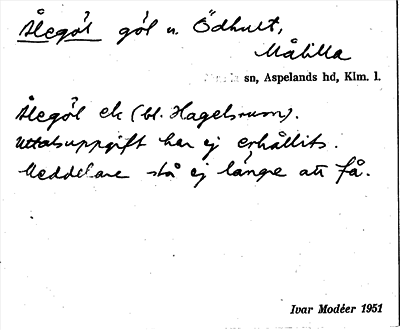 Ålegöl göl u. Ödhult,
Målilla
sn, Aspelands hd, Klm. l.
Ålegöl ek (bl. Hagelsrum).
Uttalsuppgift har ej erhållits.
Meddelare stå ej längre att få.
Ivar Modéer 1951